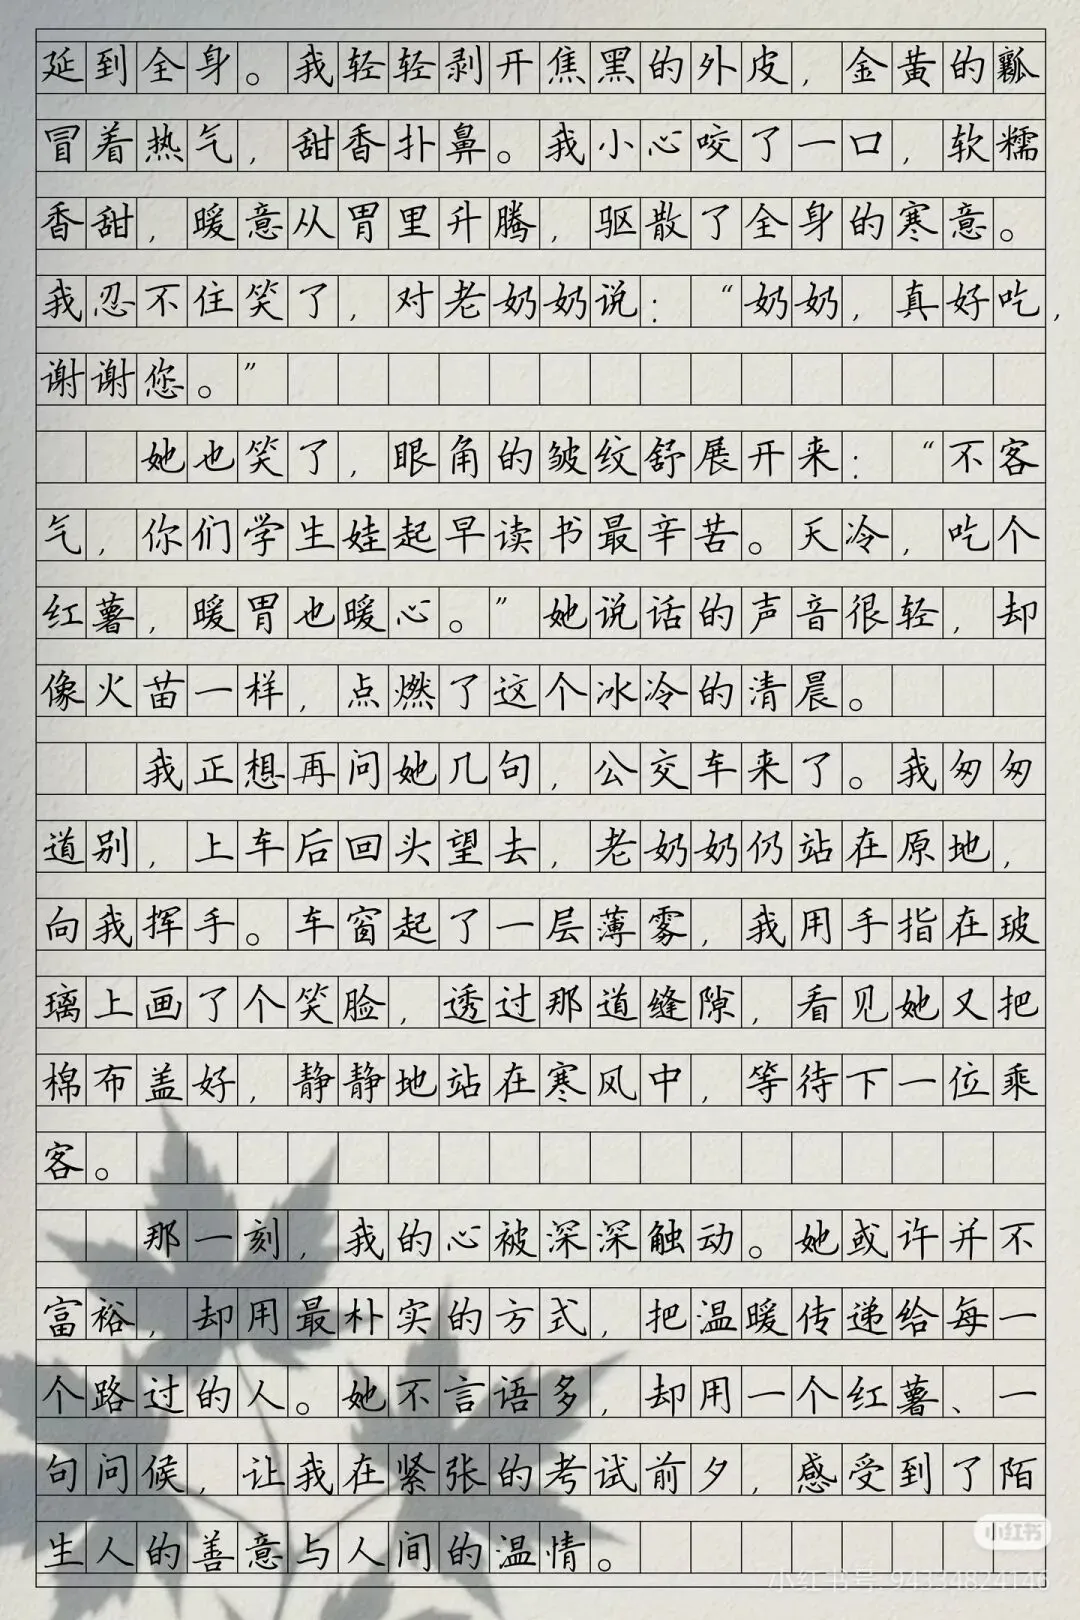 延到全身。我轻轻剥开焦黑的外皮，金黄的瓤
冒着热气，甜香扑鼻。我小心咬了一口，软糯
香甜，暖意从胃里升腾，驱散了全身的寒意。
我忍不住笑了，对老奶奶说：“奶奶，真好吃，
谢谢您。”
她也笑了，眼角的皱纹舒展开来：“不客
气，你们学生娃起早读书最辛苦。天冷，吃个
红薯，暖胃也暖心。”她说话的声音很轻，却
像火苗一样，点燃了这个冰冷的清晨。
我正想再问她几句，公交车来了。我匆匆
道别，上车后回头望去，老奶奶仍站在原地，
向我挥手。车窗起了一层薄雾，我用手指在玻
璃上画了个笑脸，透过那道缝隙，看见她又把
棉布盖好，静静地站在寒风中，等待下一位乘
客。
那一刻，我的心被深深触动。她或许并不
富裕，却用最朴实的方式，把温暖传递给每一
个路过的人。她不言语多，却用一个红薯、一
句问候，让我在紧张的考试前夕，感受到了陌
生人的善意与人间的温情。
小红书
小红书号: 94334824146